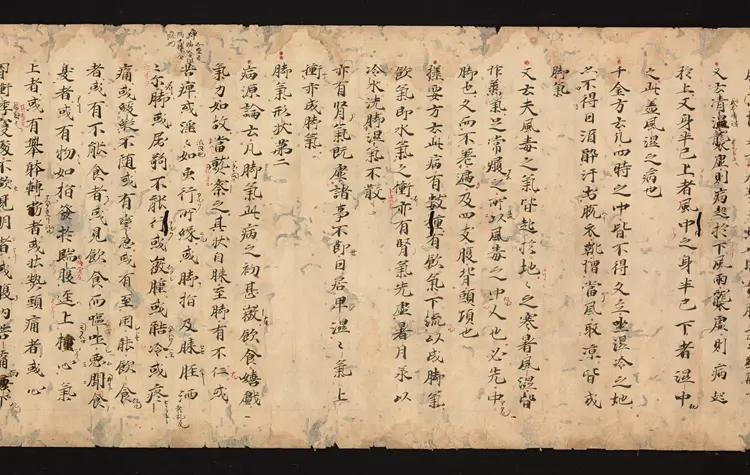 又云清濕襲虛則病起於下風雨襲虛則病起
於上又身半已上者風中之身半已下者濕中
之此蓋風濕之病也
千金方云凡四時之中皆不得久立坐濕冷之地
亦不得因酒酔汗出脱衣靴襪當風取涼皆成
脚氣
又云夫風毒之氣皆起於地々之寒暑風濕皆
作蒸氣足當履之所以風毒之中人也必先中
脚也久而不差遍及四支腹背頭項也
要方云此病有數種有飲氣下流以成脚氣
飲氣即水氣之衝亦有腎氣先虛暑月承以
冷水洗脚濕氣不散
亦有腎氣既虛諸事不節因居卑濕々氣上
衝亦成脚氣
脚氣形狀第二
病源論云凡脚氣此病之初甚微飲食嬉戲
氣力如故當熟察之其狀自膝至脚有不仁或
苦痺或淫々如虫行所緣或脚指及膝脛洒
々尒脚或屈弱不能行或微腫或酷冷或疼
痛或緩縱不随或有攣急或有至困能飲食
者或有不能食者或見飲食而嘔吐惡聞食
臭者或有物如指發於腨腹逕上撞心氣
上者或有舉躰轉筋者或壯熱頭痛者或心
胸衝悸寢處不欲見明者或腹内苦痛